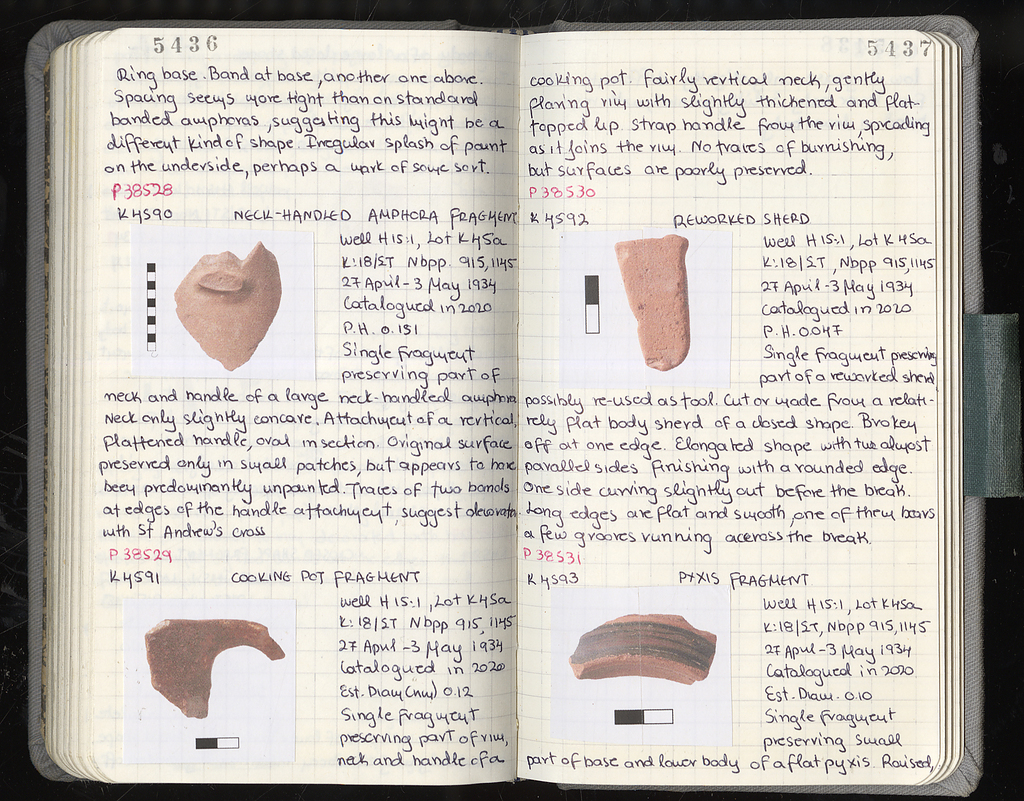 5436
Ring base. Band at base, another one above.
Spacing seems more tight than on standard
banded amphoras, suggesting this might be a
different kind of shape. Irregular splash of paint
on the underside, perhaps a mark of some sort.
P 38528
K 4590 NECK-HANDLED AMPHORA FRAGMENT
Well H 15:1, Lot K 45a
K:18/ΣΤ Nbpp. 915, 1145
27 April - 3 May 1934
Catalogued in 2020
P.H. 0.151
Single fragment
preserving part of
neck and handle of a large neck-handled amphora
Neck only slightly concave. Attachment of a vertical,
flattened handle, oval in section. Original surface
preserved only in small patches, but appears to have
been predominantly unpainted. Traces of two bands
at edges of the handle attachment, suggest decoration
with St Andrew's cross
P 38529
K 4591 COOKING POT FRAGMENT
Well H 15:1, Lot K 45a
K:18/ΣΤ Nbpp 915, 1145
27 April - 3 May 1934
Catalogued in 2020
Est. Diam (rim) 0.12
Single fragment
preserving part of rim,
neck and handle of a
5437
cooking pot. Fairly vertical neck, gently
flaring rim with slightly thickened and flat-
topped lip. Strap handle from the rim, spreading
as it joins the rim. No traces of burnishing,
but surfaces are poorly preserved.
P 38530
K 4592 REWORKED SHERD
Well H 15:1, Lot K 45a
K:18/ΣΤ, Nbpp 915, 1145
27 April - 3 May 1934
Catalogued in 2020
P.H. 0.047
Single fragment preserving
part of a reworked sherd,
possibly re-used as tool. Cut or made from a relati-
vely flat body sherd of a closed shape. Broken
off at one edge. Elongated shape with two almost
parallel sides finishing with a rounded edge.
One side curving slightly out before the break.
Long edges are flat and smooth, one of them bears
a few grooves running aceross the break.
P 38531
K 4593 PYXIS FRAGMENT
Well H 15:1, Lot K 45a
K:18/ΣΤ, Nbpp 915, 1145
27 April - 3 May 1934
Catalogued in 2020
Est. Diam. 0.10
Single fragment
preserving small
part of base and lower body of a flat pyxis. Raised,